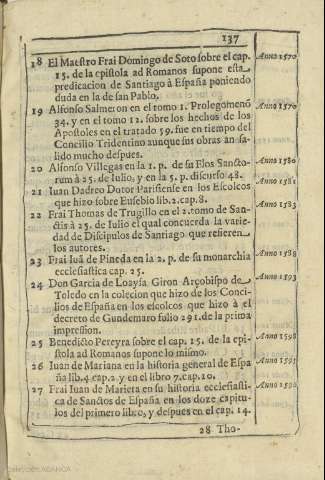 137
18 El Maestro Frai Domingo de Soto sobre el cap. Anno 1570
15. de la epistola ad Romanos supone esta
predicacion de Santiago à España poniendo
duda en la de san Pablo.
19 Alfonso Salmeron en el tomo 1. Prolegomenõ Anno 1570
34. y en el tomo 12. sobre los hechos de los
Apostoles en el tratado 59. fue en tiempo del
Concilio Tridentino aunque sus obras an sa-
lido mucho despues.
20 Alfonso Villegas en la 1. p. de su Flos Sancto- Anno 1580
rum à 25. de Iulio, y en la 5. p. discurso 48.
21 Iuan Dadreo Dotor Parisiense en los Escolcos Anno 1581
que hizo sobre Eusebio lib. 2. cap. 8.
22 Frai Thomas de Trugillo en el 2. tomo de San- Anno 1583
ctis à 25. de Iulio el qual concuerda la varie-
dad de Discipulos de Santiago que refieren
los autores.
23 Frai Iuã de Pineda en la 2. p. de su monarchia Anno 1588
ecclesiastica cap. 25.
24 Don Garcia de Loaysa Giron Arçobispo de Anno 1593
Toledo en la colecion que hizo de los Conci-
lios de España en los escolcos que hizo à el
decreto de Gundemaro folio 291. de la prima
impression.
25 Benedicto Pereyra sobre el cap. 15. de la epi- Anno 1598
stola ad Romanos supone lo mismo.
26 Iuan de Mariana en la historia general de Espa Anno 1595
ña lib. 4. cap. 2. y en el libro 7. cap. 10.
27 Frai Iuan de Marieta en su historia ecclesiasti- Anno 1596
ca de Sanctos de España en los doze capitu-
los del primero libro, y despues en el cap. 14.
28 Tho-